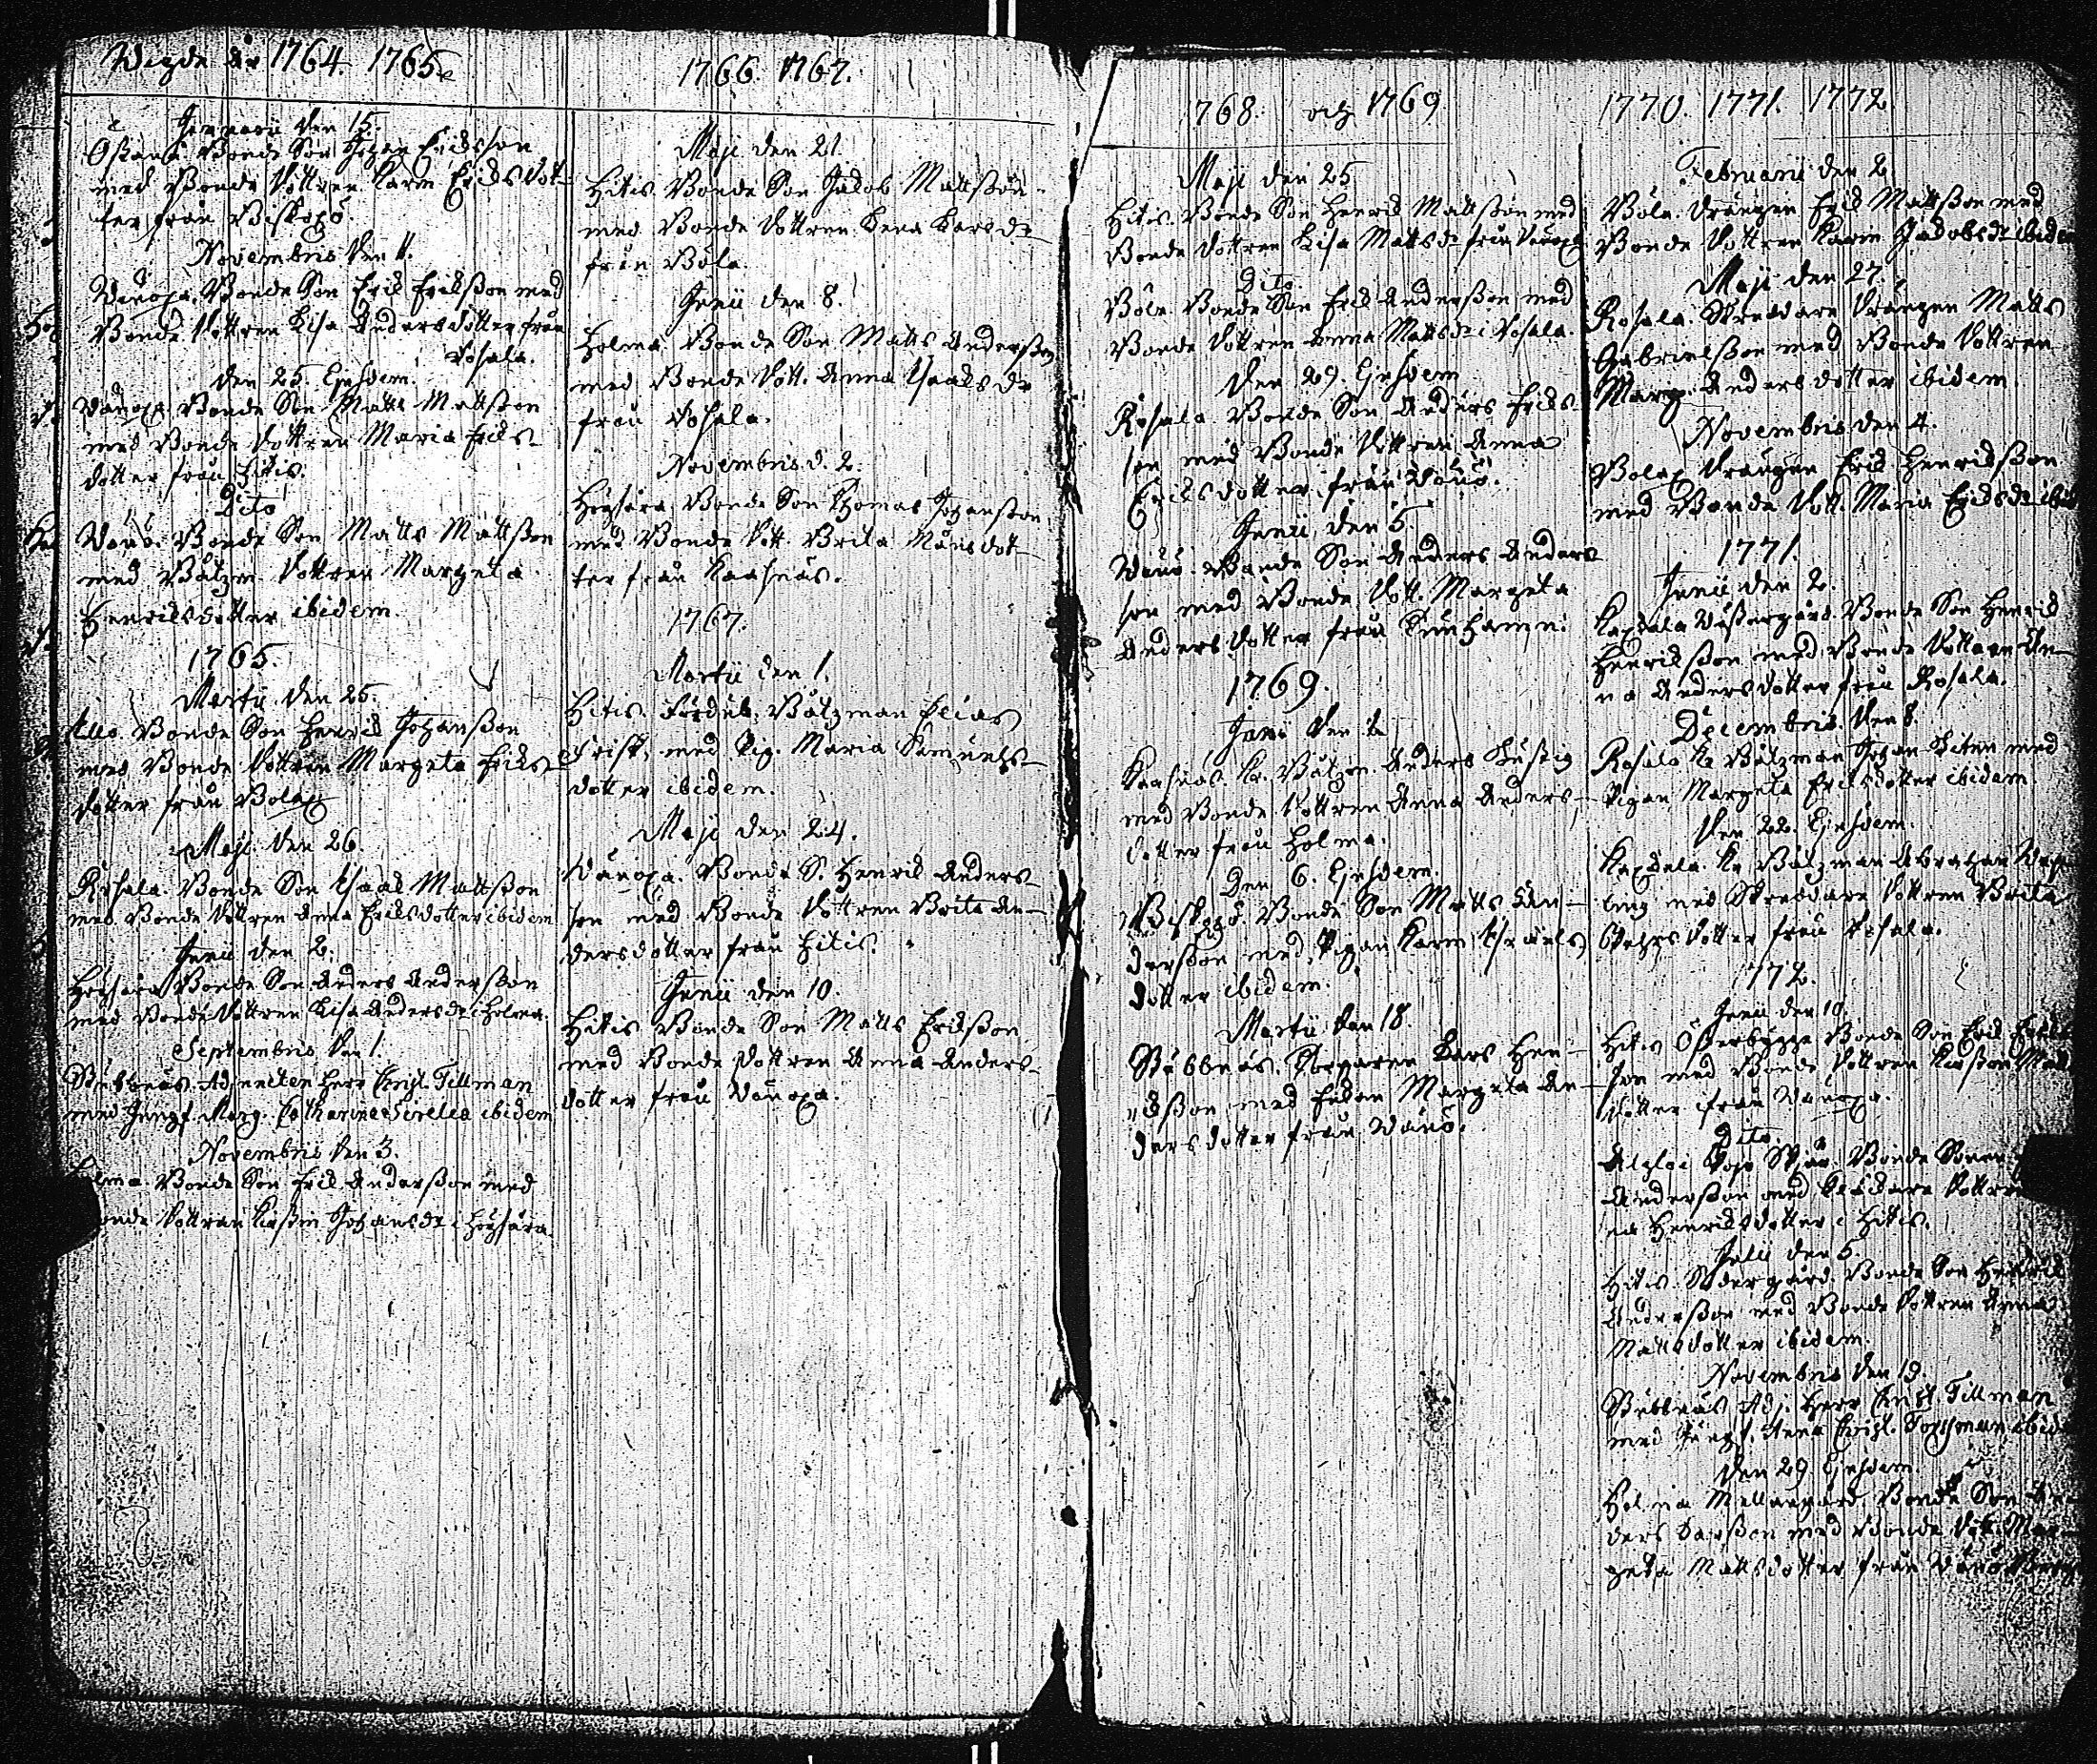 Wigde år 1764. 1765
Januarii den 15.
Bonde Son Johan Ericsson
med Bonde Dottren Karin Ericsdot-
ter från Biskopsö.
Novembris den 11.
Wänoxa. Bonde Son Eric Ericksson med
Bonde Dottren Lisa Andersdotter från
Rosala.
Den 25. Ejusdem.
Wänoxa. Bonde Son Matts Mattsson
med Bonde Dottren Maria Erics-
dotter från Hitis.
Dito
Wänö. Bonde Son Matts Mattsson
med Båtzm. Dottren Margeta
Henricsdotter ibidem.
1765.
Martii den 25.
Bonde Son Henric Johansson
med Bonde Dottren Margeta Erics-
dotter från Bolax
Maji den 26.
Rosala. Bonde Son Isaac Mattsson
med Bonde Dottren Anna Ericsdotter ibidem
Junii den 2.
Högsåra Bonde Son Anders Andersson
med Bonde Dottren Lisa Andersdr i Holma.
Septembris den 1.
Stubbnäs. Adjuncten Herr Christ. Tillman
med Jungf. Marg. Catharina Sirelia ibidem
Novembris den 3.
Holma. Bonde Son Eric Andersson med
Bonde Dottren Kirstin Johansdr i Högsåra.
1766. 1767.
Maji den 21.
Hitis Bonde Son Jacob Mattsson
med Bonde Dottren Lena Larsdr
från Böle.
Junii den 8.
Holma. Bonde Son Matts Andersson
med Bonde Dott. Anna Isaacsdr
från Rosala.
Novembris d. 2.
Högsåra. Bonde Son Thomas Johansson
med Bonde Dott. Brita Månsdot-
ter från Kasnäs.
1767.
Martii den 1.
Hitis. Båtzman Elias
Frisk, med Pig. Maria Samuels-
dotter ibidem.
Maji den 24.
Wänoxa. Bonde S. Henric Anders-
son med Bonde Dottren Brita An-
dersdotter från Hitis.
Junii den 10.
Hitis Bonde Son Matts Ericsson
med Bonde Dottren Anna Anders-
dotter från Wänoxa.
1768. och 1769
Maji den 25
Hitis. Bonde Son Henric Mattsson med
Bonde Dottren Lisa Mattsdr från Wänoxa
Dito
Böle. Bonde Son Eric Andersson med
Bonde Dottren Anna Mattsdr i Rosala.
Den 29. Ejusdem
Rosala. Bonde Son Anders Erics-
son med Bonde Dottren Anna
Ericsdotter från Wänö.
Junii den 5.
Wänö. Bonde Son Anders Anders-
son med Bonde Dott. Margeta
Andersdotter från
1769.
Junii den
Kasnäs. Kr. Båtzm. Anders Lustig
med Bonde Dottren Anna Anders-
dotter från Holma.
Den 6. Ejusdem.
Biskopsö. Bonde Son Matts An-
dersson med Pigan Karin Israels
dotter ibidem.
Martii den 18.
Stubbnäs. Torparen Lars Hen-
ricsson med Enkan Margeta An-
dersdotter från Wänö.
1770. 1771. 1772
Februarii den 2.
Böle. Drängen Eric Mattsson med
Bonde Dottren Karin Jacobsdr ibidem
Maji den 27.
Rosala. Skreddare Drängen Matts
Gabrielsson med Bonde Dottren
Marg. Andersdotter ibidem.
Novembris den 4.
Bolax Drängen Eric Henricsson
med Bonde Dott. Maria Ericsdr ibid
1771.
Junii den 2.
Kaxskala Wästergård. Bonde Son Henric
Henricsson med Bonde Dottren An-
na Andersdotter från Rosala.
Decembris den 8.
Rosala Kr Båtzman Johan Liten med
Pigan Margeta Ericsdotter ibidem.
Den 22. Ejusdem.
Kaxskala Kr Båtzman Abraham
ling med Skreddare Dottren Brita
dotter från Rosala.
1772.
Junii den 10.
Hitis Österbygge Bonde Son Eric Erics
son med Bonde Dottren Kirstin Matts
dotter från Wänoxa.
Dito
Bonde Sonen
Andersson med Dottren
na Henricsdotter i Hitis.
Julii den 5
Hitis. Södergård. Bonde Son Henric
Andersson med Bonde Dottren Anna
Mattsdotter ibidem.
Novembris den 19.
Stubbnäs Adj. Herr Christ. Tillman
med Jungf. Anna Christ. ibid
Den 29 Ejusdem.
Holma Mellangård. Bonde Son An-
ders Larsson med Bonde Dott. Mar-
geta Mattsdotter från Wänö